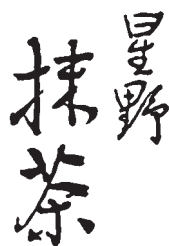 星野
抹茶